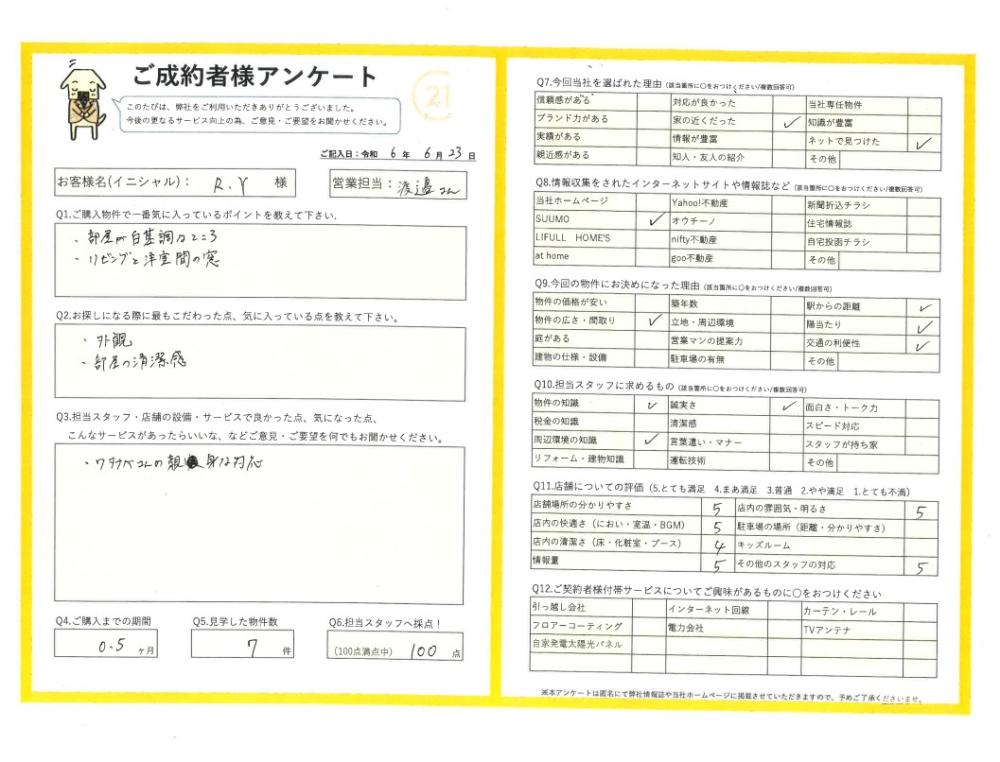 ご成約者様アンケート
21
このたびは、弊社をご利用いただきありがとうございました。
今後の更なるサービス向上の為、ご意見・ご要望をお聞かせください。
ご記入日：令和 6 年 6 月 23 日
お客様名(イニシャル)： R.Y 様
営業担当： 渡邉さん
Q1.ご購入物件で一番気に入っているポイントを教えて下さい.
・部屋が白基調なところ
・リビングと洋室間の窓
Q2.お探しになる際に最もこだわった点、気に入っている点を教えて下さい。
・外観
・部屋の清潔感
Q3.担当スタッフ・店舗の設備・サービスで良かった点、気になった点、
こんなサービスがあったらいいな、などご意見・ご要望を何でもお聞かせください。
・ワタナベさんの親身な対応
Q4.ご購入までの期間
0.5 ヶ月
Q5.見学した物件数
7 件
Q6.担当スタッフへ採点！
(100点満点中) 100 点
Q7.今回当社を選ばれた理由 (該当箇所に○をおつけください/複数回答可)
信頼感がある 対応が良かった 当社専任物件
ブランド力がある 家の近くだった ✓ 知識が豊富
実績がある 情報が豊富 ネットで見つけた ✓
親近感がある 知人・友人の紹介 その他
Q8.情報収集をされたインターネットサイトや情報誌など (該当箇所に○をおつけください/複数回答可)
当社ホームページ Yahoo!不動産 新聞折込チラシ
SUUMO ✓ オウチーノ 住宅情報誌
LIFULL HOME'S nifty不動産 自宅投函チラシ
at home goo不動産 その他
Q9.今回の物件にお決めになった理由 (該当箇所に○をおつけください/複数回答可)
物件の価格が安い 築年数 駅からの距離 ✓
物件の広さ・間取り ✓ 立地・周辺環境 陽当たり ✓
庭がある 営業マンの提案力 交通の利便性 ✓
建物の仕様・設備 駐車場の有無 その他
Q10.担当スタッフに求めるもの (該当箇所に○をおつけください/複数回答可)
物件の知識 ✓ 誠実さ ✓ 面白さ・トーク力
税金の知識 清潔感 スピード対応
周辺環境の知識 ✓ 言葉遣い・マナー スタッフが持ち家
リフォーム・建物知識 運転技術 その他
Q11.店舗についての評価 (5.とても満足 4.まあ満足 3.普通 2.やや満足 1.とても不満)
店舗場所の分かりやすさ 5 店内の雰囲気・明るさ 5
店内の快適さ（におい・室温・BGM） 5 駐車場の場所（距離・分かりやすさ）
店内の清潔さ（床・化粧室・ブース） 4 キッズルーム
情報量 5 その他のスタッフの対応 5
Q12.ご契約者様付帯サービスについてご興味があるものに○をおつけください
引っ越し会社 インターネット回線 カーテン・レール
フロアーコーティング 電力会社 TVアンテナ
自家発電太陽光パネル
※本アンケートは匿名にて弊社情報誌や当社ホームページに掲載させていただきますので、予めご了承くださいませ。